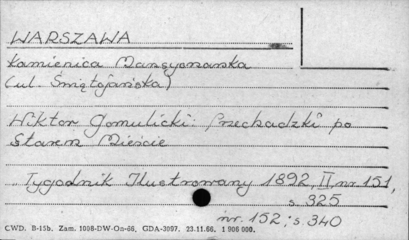 WARSZAWA
Kamienica Mansyonarska
(ul. Świętojańska)
Wiktor Gomulicki: Przechadzki po
Starem Mieście
Tygodnik Ilustrowany 1892, II, nr. 151,
s. 325
nr. 152, s. 340
CWD. B-15b. Zam. 1098-DW-On-66. GDA-3097. 23.11.66. 1 900 000.